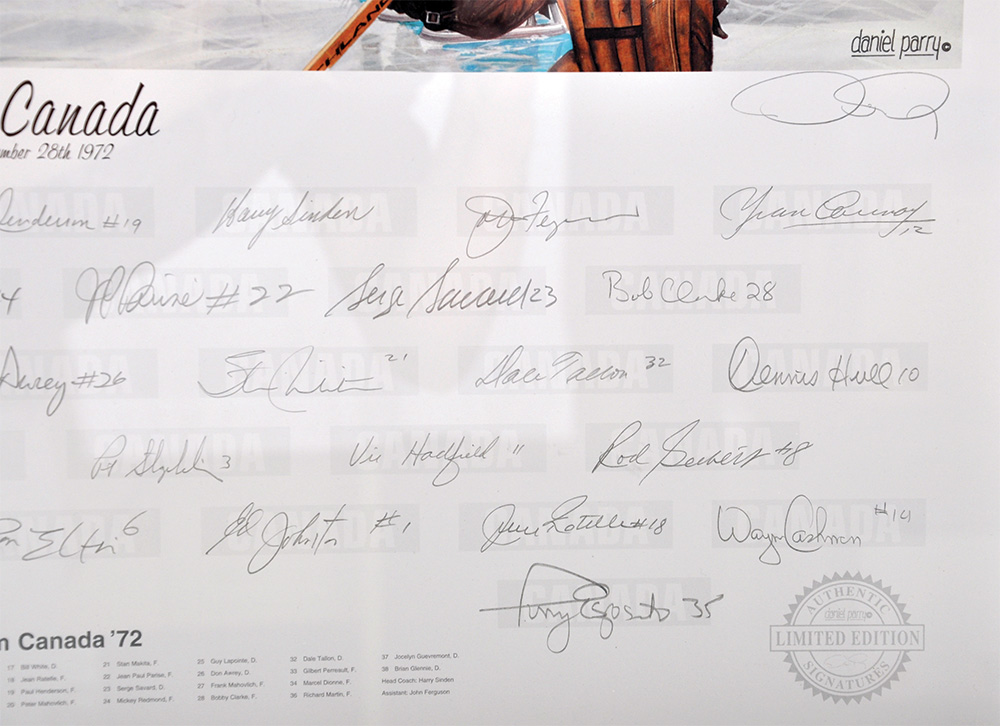 daniel parry©
Canada
mber 28th 1972
Henderson #19 Harry Sinden John Ferguson Yvan Cournoyer 12
4 JP Parisé #22 Serge Savard 23 Bob Clarke 28
Awrey #26 Stan Mikita 21 Dale Tallon 32 Dennis Hull 10
Pat Stapleton 3 Vic Hadfield 11 Rod Seiling #8
Ron Ellis 6 Ed Johnston #1 Jean Ratelle #18 Wayne Cashman #14
Tony Esposito 35
AUTHENTIC
daniel parry©
LIMITED EDITION
SIGNATURES
n Canada '72
17 Bill White, D.
18 Jean Ratelle, F.
19 Paul Henderson, F.
20 Pete Mahovlich, F.
21 Stan Makita, F.
22 Jean Paul Parise, F.
23 Serge Savard, D.
24 Mickey Redmond, F.
25 Guy Lapointe, D.
26 Don Awrey, D.
27 Frank Mahovlich, F.
28 Bobby Clarke, F.
32 Dale Tallon, D.
33 Gilbert Perreault, F.
34 Marcel Dionne, F.
36 Richard Martin, F.
37 Jocelyn Guevremont, D.
38 Brian Glennie, D.
Head Coach: Harry Sinden
Assistant: John Ferguson